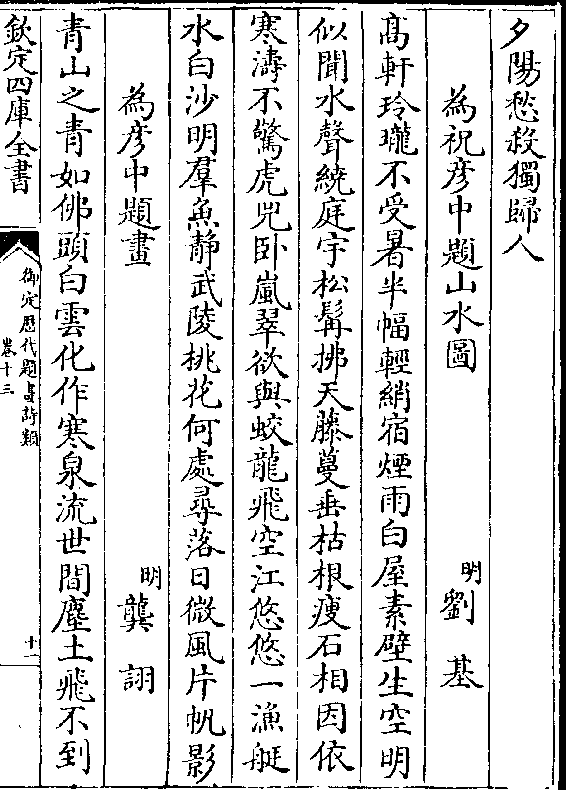 夕陽愁殺獨歸人
為祝彦中題山水圖 明劉基
髙軒玲瓏不受暑半幅輕綃宿煙雨白屋素壁生空明
似聞水聲繞庭宇松髯拂天藤蔓垂枯根瘦石相因依
寒濤不驚虎兕卧嵐翠欲與蛟龍飛空江悠悠一漁艇
水白沙明羣魚静武陵桃花何處尋落日微風片帆影
為彦中題畫 明龔詡
青山之青如佛頭白雲化作寒泉流世間塵土飛不到
欽定四庫全書
御定歴代題畫詩類
卷十三
十一